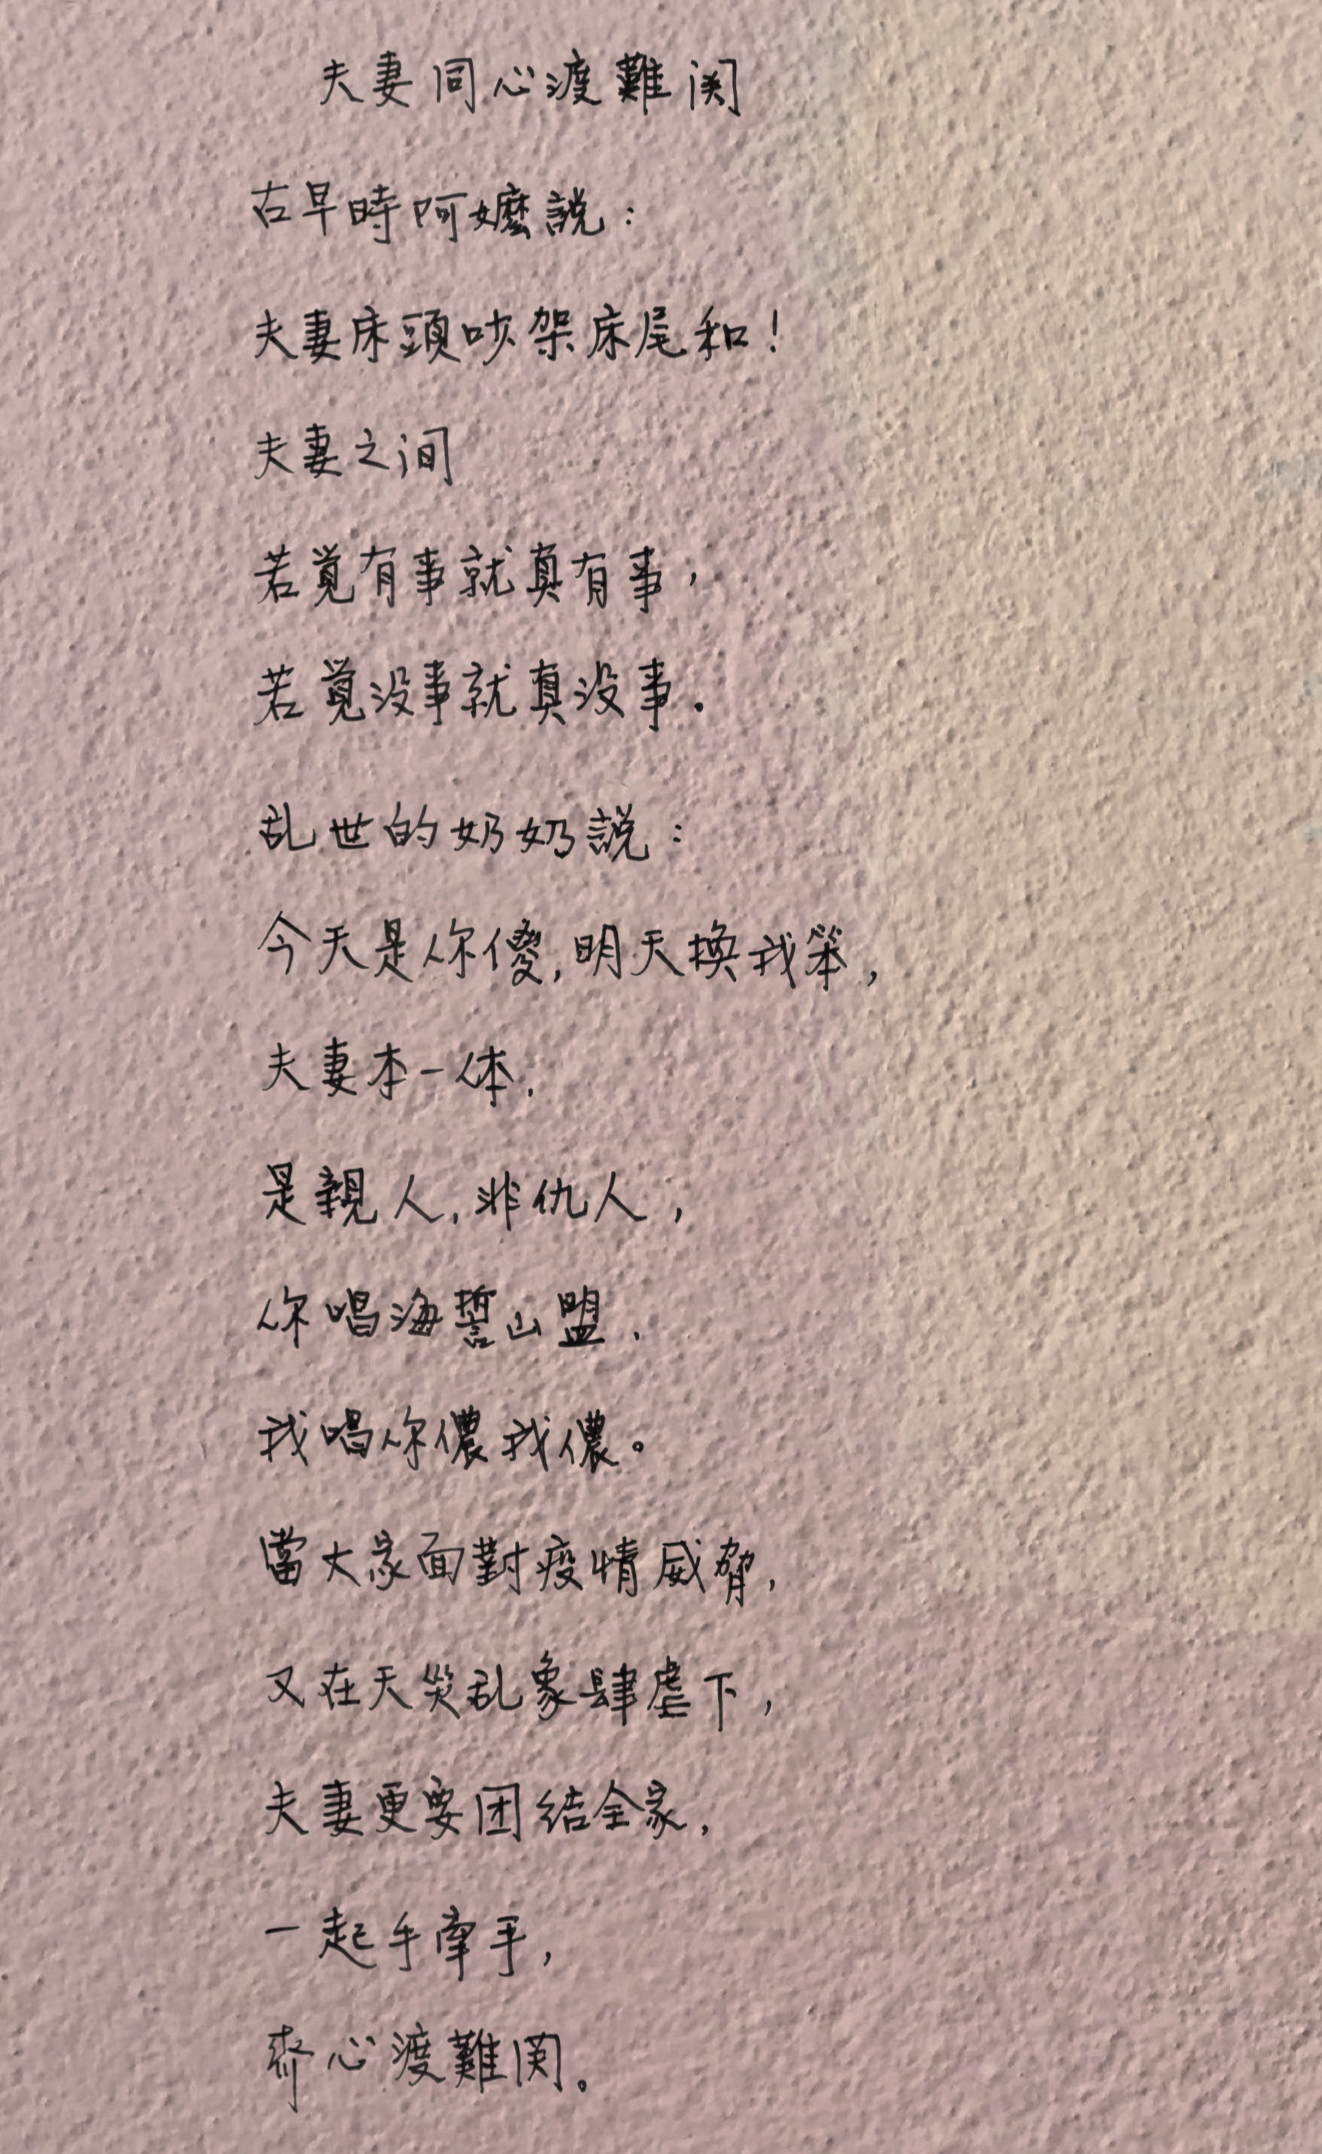 夫妻同心渡難関
古早時阿嬤說：
夫妻床頭吵架床尾和！
夫妻之间
若覚有事就真有事，
若覚没事就真没事．
乱世的奶奶說：
今天是你傻，明天換我笨，
夫妻本一体，
是親人，非仇人，
你唱海誓山盟，
我唱你儂我儂。
當大家面對疫情威脅，
又在天災乱象肆虐下，
夫妻更要团结全家，
一起手牽手，
齐心渡難関。